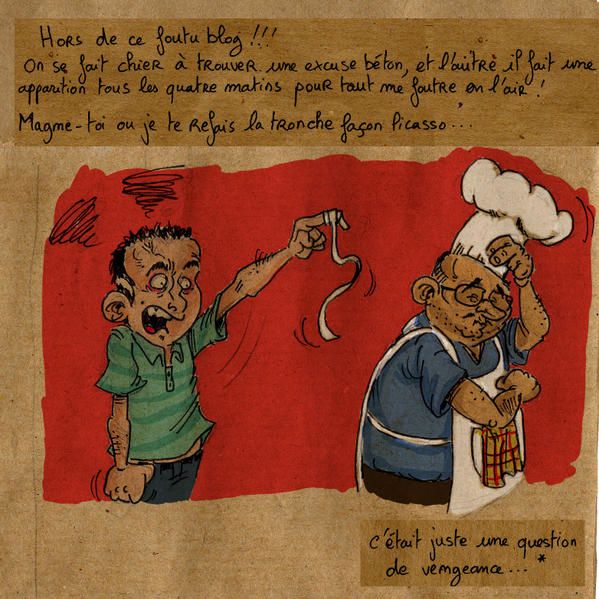 Hors de ce foutu blog !!!
On se fait chier à trouver une excuse béton, et l'autre il fait une
apparition tous les quatre matins pour tout me foutre en l'air !
Magne-toi ou je te refais la tronche façon Picasso...
c'était juste une question
de vengeance... *